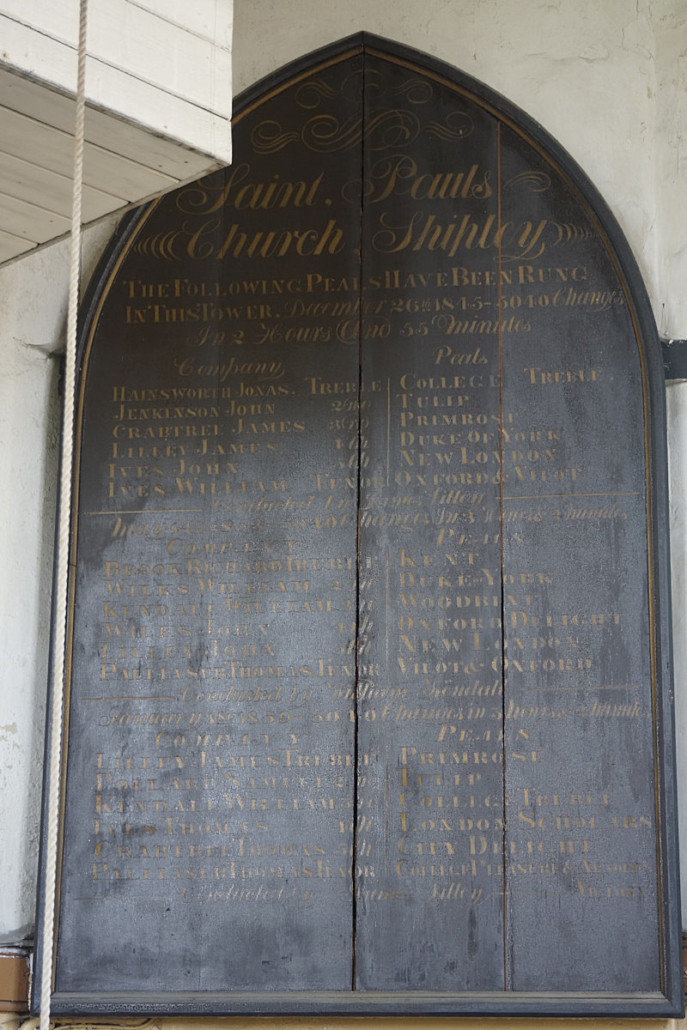 Saint. Pauls
Church Shipley
THE FOLLOWING PEALS HAVE BEEN RUNG
IN THIS TOWER. December 26th 1845 - 5040 Changes
In 2 Hours And 55 Minutes
Company Peals
HAINSWORTH JONAS. TREBLE COLLEGE TREBLE.
JENKINSON JOHN 2nd TULIP
CRABTREE JAMES 3rd PRIMROSE
LILLEY JAMES 4th DUKE OF YORK
IVES JOHN 5th NEW LONDON
IVES WILLIAM TENOR OXFORD & VILOT
Conducted by James Lilley
5040 Changes In 3 Hours & 2 minutes
COMPANY PEALS
BROOK RICHARD TREBLE KENT
WILKS WILLIAM 2nd DUKE OF YORK
KENDALL WILLIAM 3rd WOODBINE
WILKS JOHN 4th OXFORD DELIGHT
LILLEY JOHN 5th NEW LONDON
PALLIASER THOMAS TENOR VILOT & OXFORD
Conducted by William Kendall
5040 Changes in 3 hours & 2 minutes
COMPANY PEALS
LILLEY JAMES TREBLE PRIMROSE
POLLARD SAMUEL 2nd TULIP
KENDALL WILLIAM 3rd COLLEGE TREBLE
IVES THOMAS 4th LONDON SCHOLARS
CRABTREE THOMAS 5th CITY DELIGHT
PALLIASER THOMAS TENOR COLLEGE PLEASURE &
Conducted by James Lilley